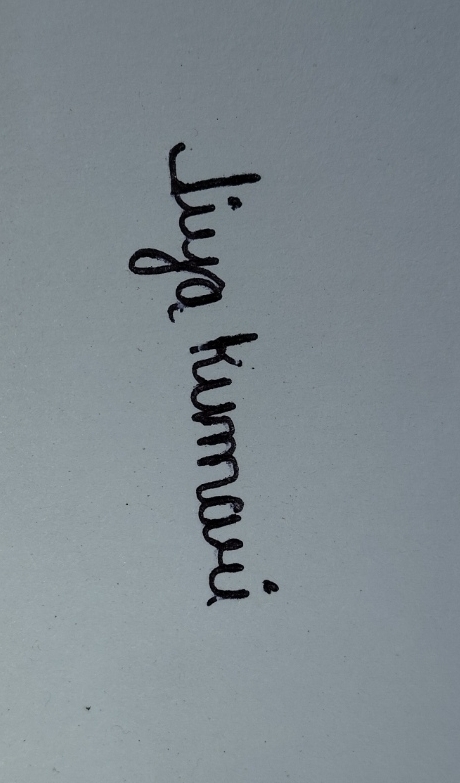 Jiya Kumari